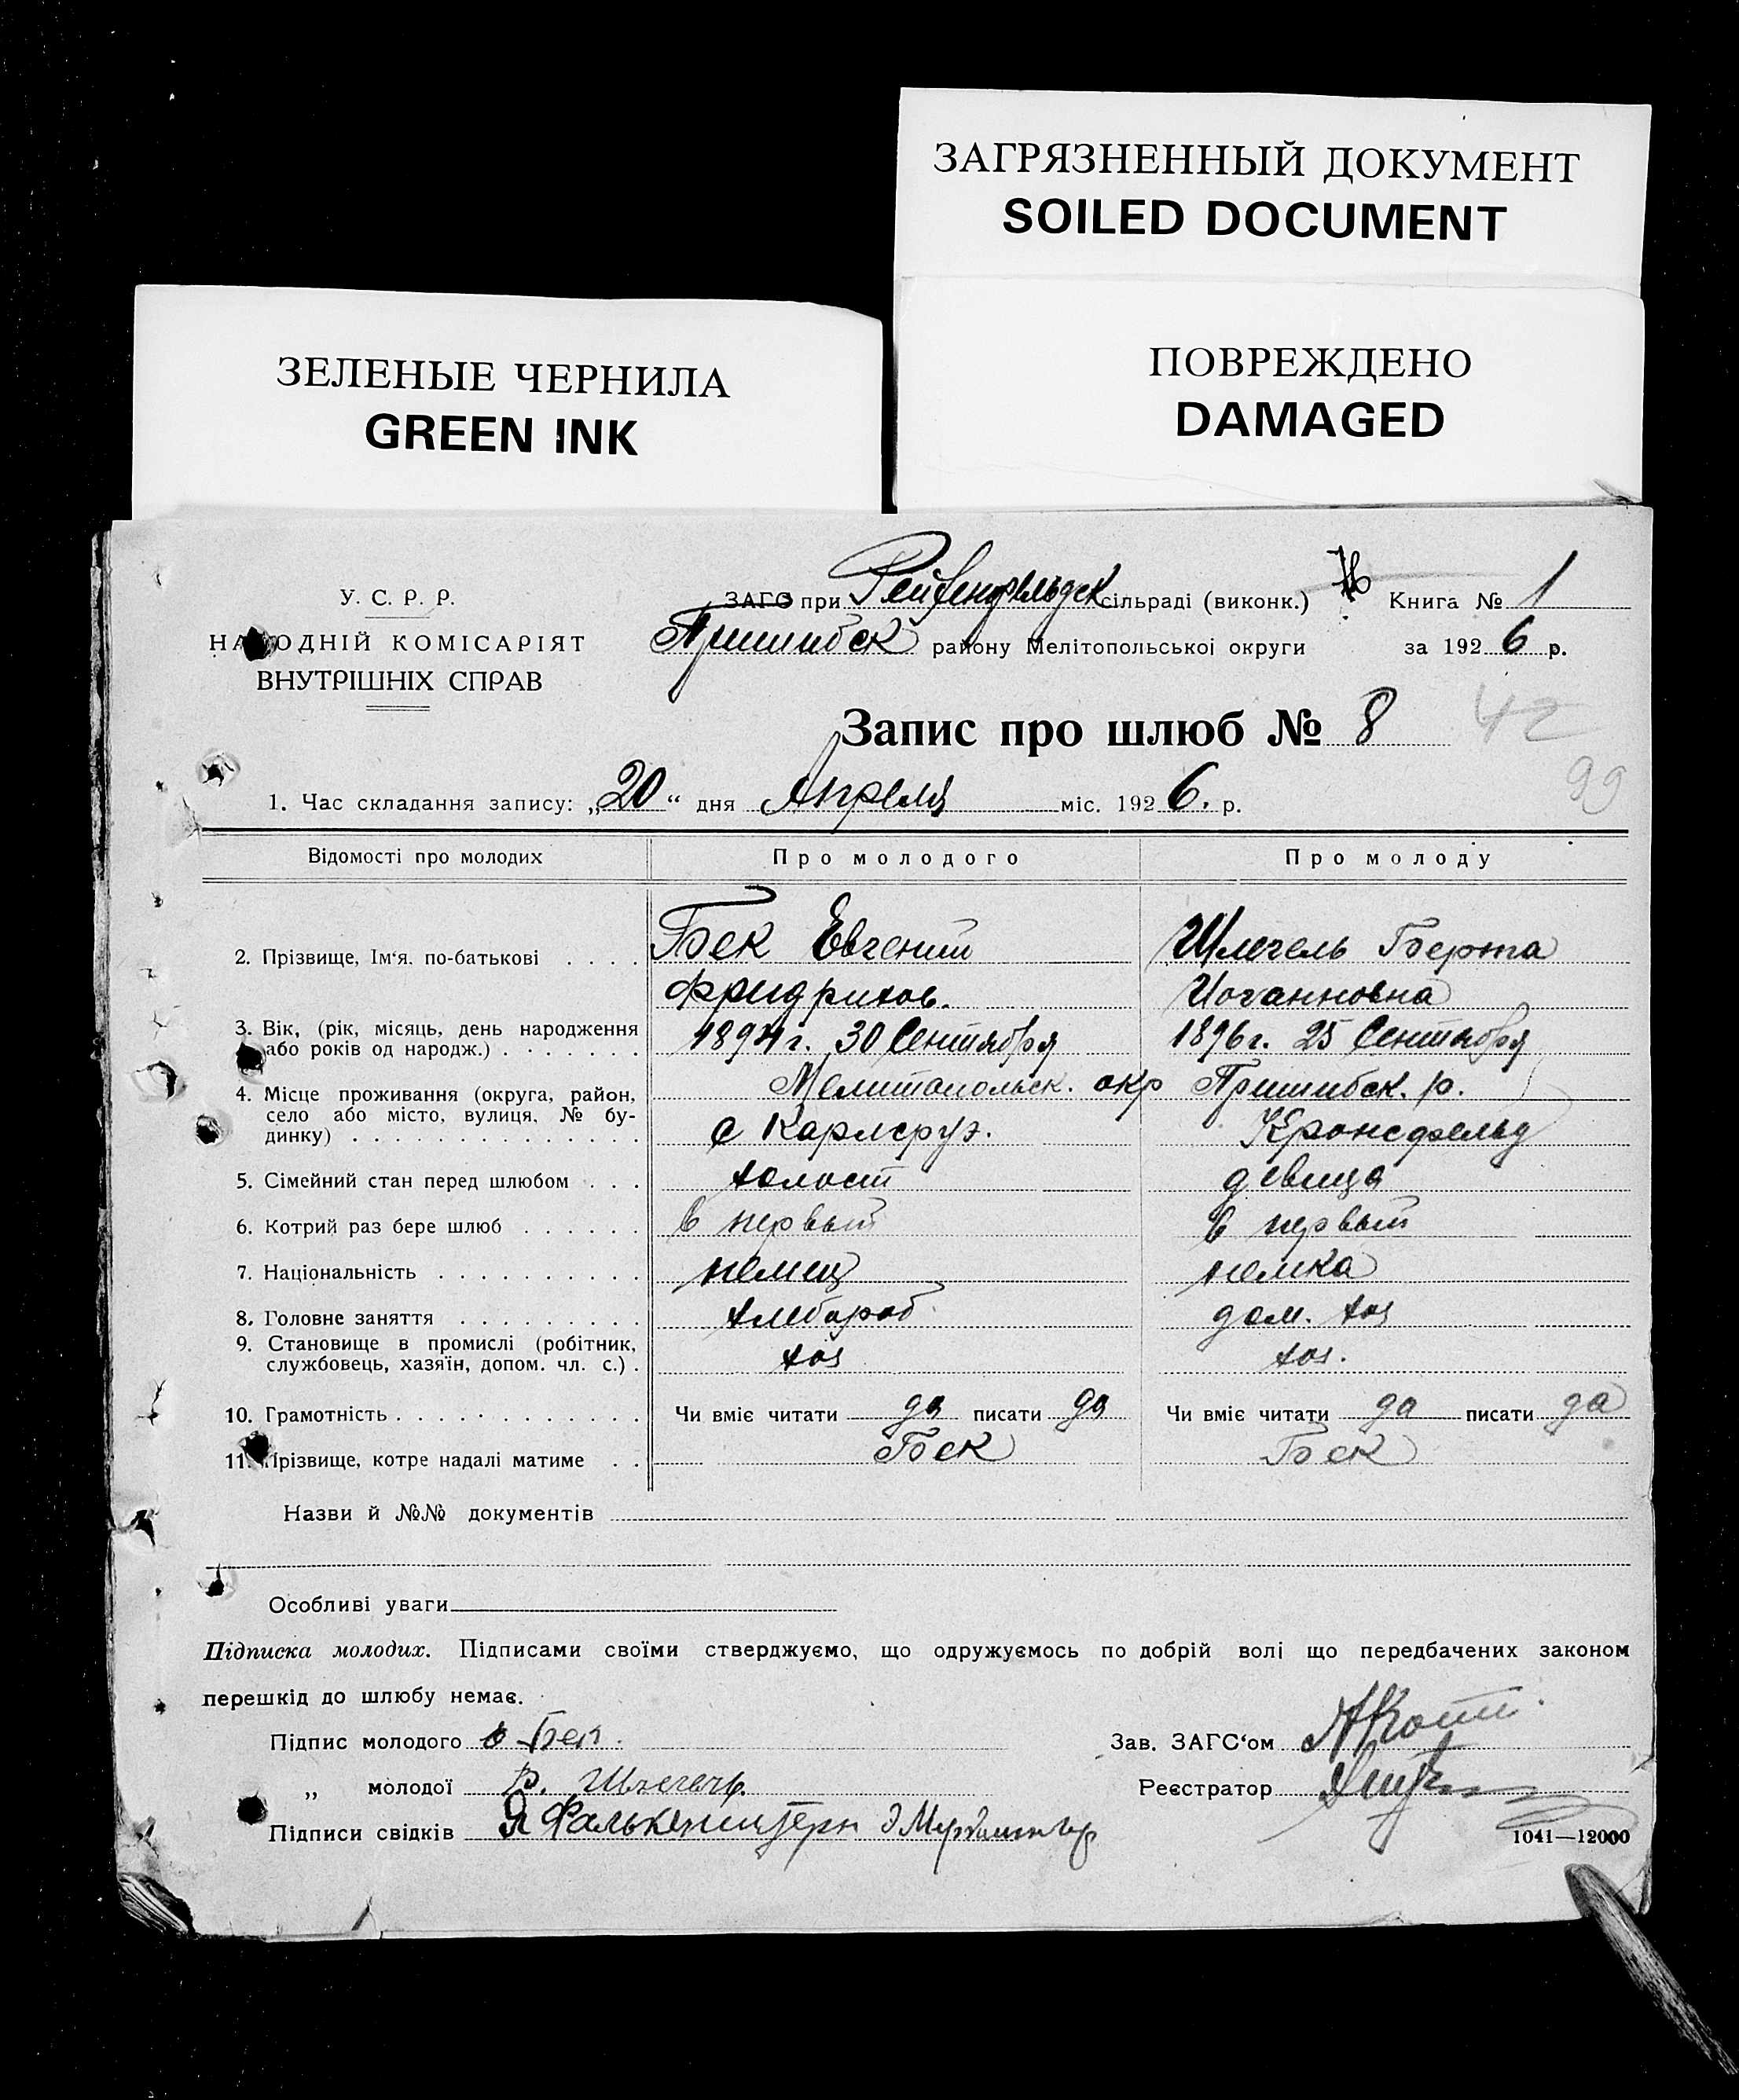 ЗАГРЯЗНЕННЫЙ ДОКУМЕНТ
SOILED DOCUMENT
ПОВРЕЖДЕНО
DAMAGED
ЗЕЛЕНЫЕ ЧЕРНИЛА
GREEN INK
У. С. Р. Р.
НАРОДНІЙ КОМІСАРІЯТ
ВНУТРІШНІХ СПРАВ
ЗАГС при Рейхенфельдск сільраді (виконк.) Книга № 1
Пришибск району Мелітопольської округи за 1926 р.
Запис про шлюб № 8 42
99
1. Час складання запису: „20“ дня Апреля міс. 1926. р.
Відомості про молодих Про молодого Про молоду
2. Прізвище, Ім‘я. по-батькові Бек Евгений Шлегель Берта
Фридрихов. Иоганновна
3. Вік, (рік, місяць, день народження або років од народж.) 1894 г. 30 Сентября 1896 г. 25 Сентября
4. Місце проживання (округа, район, Мелитопольск. окр Пришибск. р.
село або місто, вулиця, № бу-
динку) с Карлсруэ. Кронсфельд
5. Сімейний стан перед шлюбом холост девица
6. Котрий раз бере шлюб в первый в первый
7. Національність немец немка
8. Головне заняття хлебороб дом. хоз
9. Становище в промислі (робітник,
службовець, хазяїн, допом. чл. с.) хоз хоз.
10. Грамотність Чи вміє читати да писати да Чи вміє читати да писати да
11. Прізвище, котре надалі матиме Бек Бек
Назви й №№ документів
Особливі уваги
Підписка молодих. Підписами своїми стверджуємо, що одружуємось по добрій волі що передбачених законом
перешкід до шлюбу немає.
Підпис молодого Бек. Зав. ЗАГС‘ом
„ молодої Б. Шлегель. Реєстратор
Підписи свідків Я Фалькенштерн Э
1041—12000